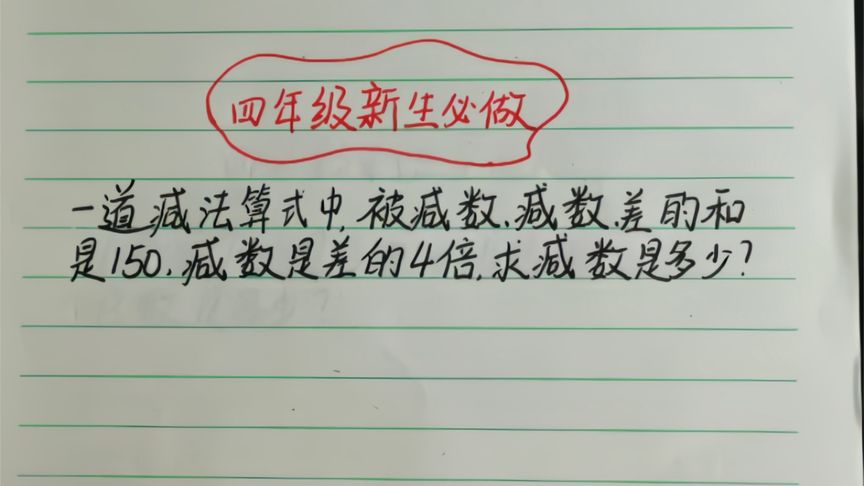 四年级新生必做
一道减法算式中,被减数、减数、差的和
是150,减数是差的4倍,求减数是多少?